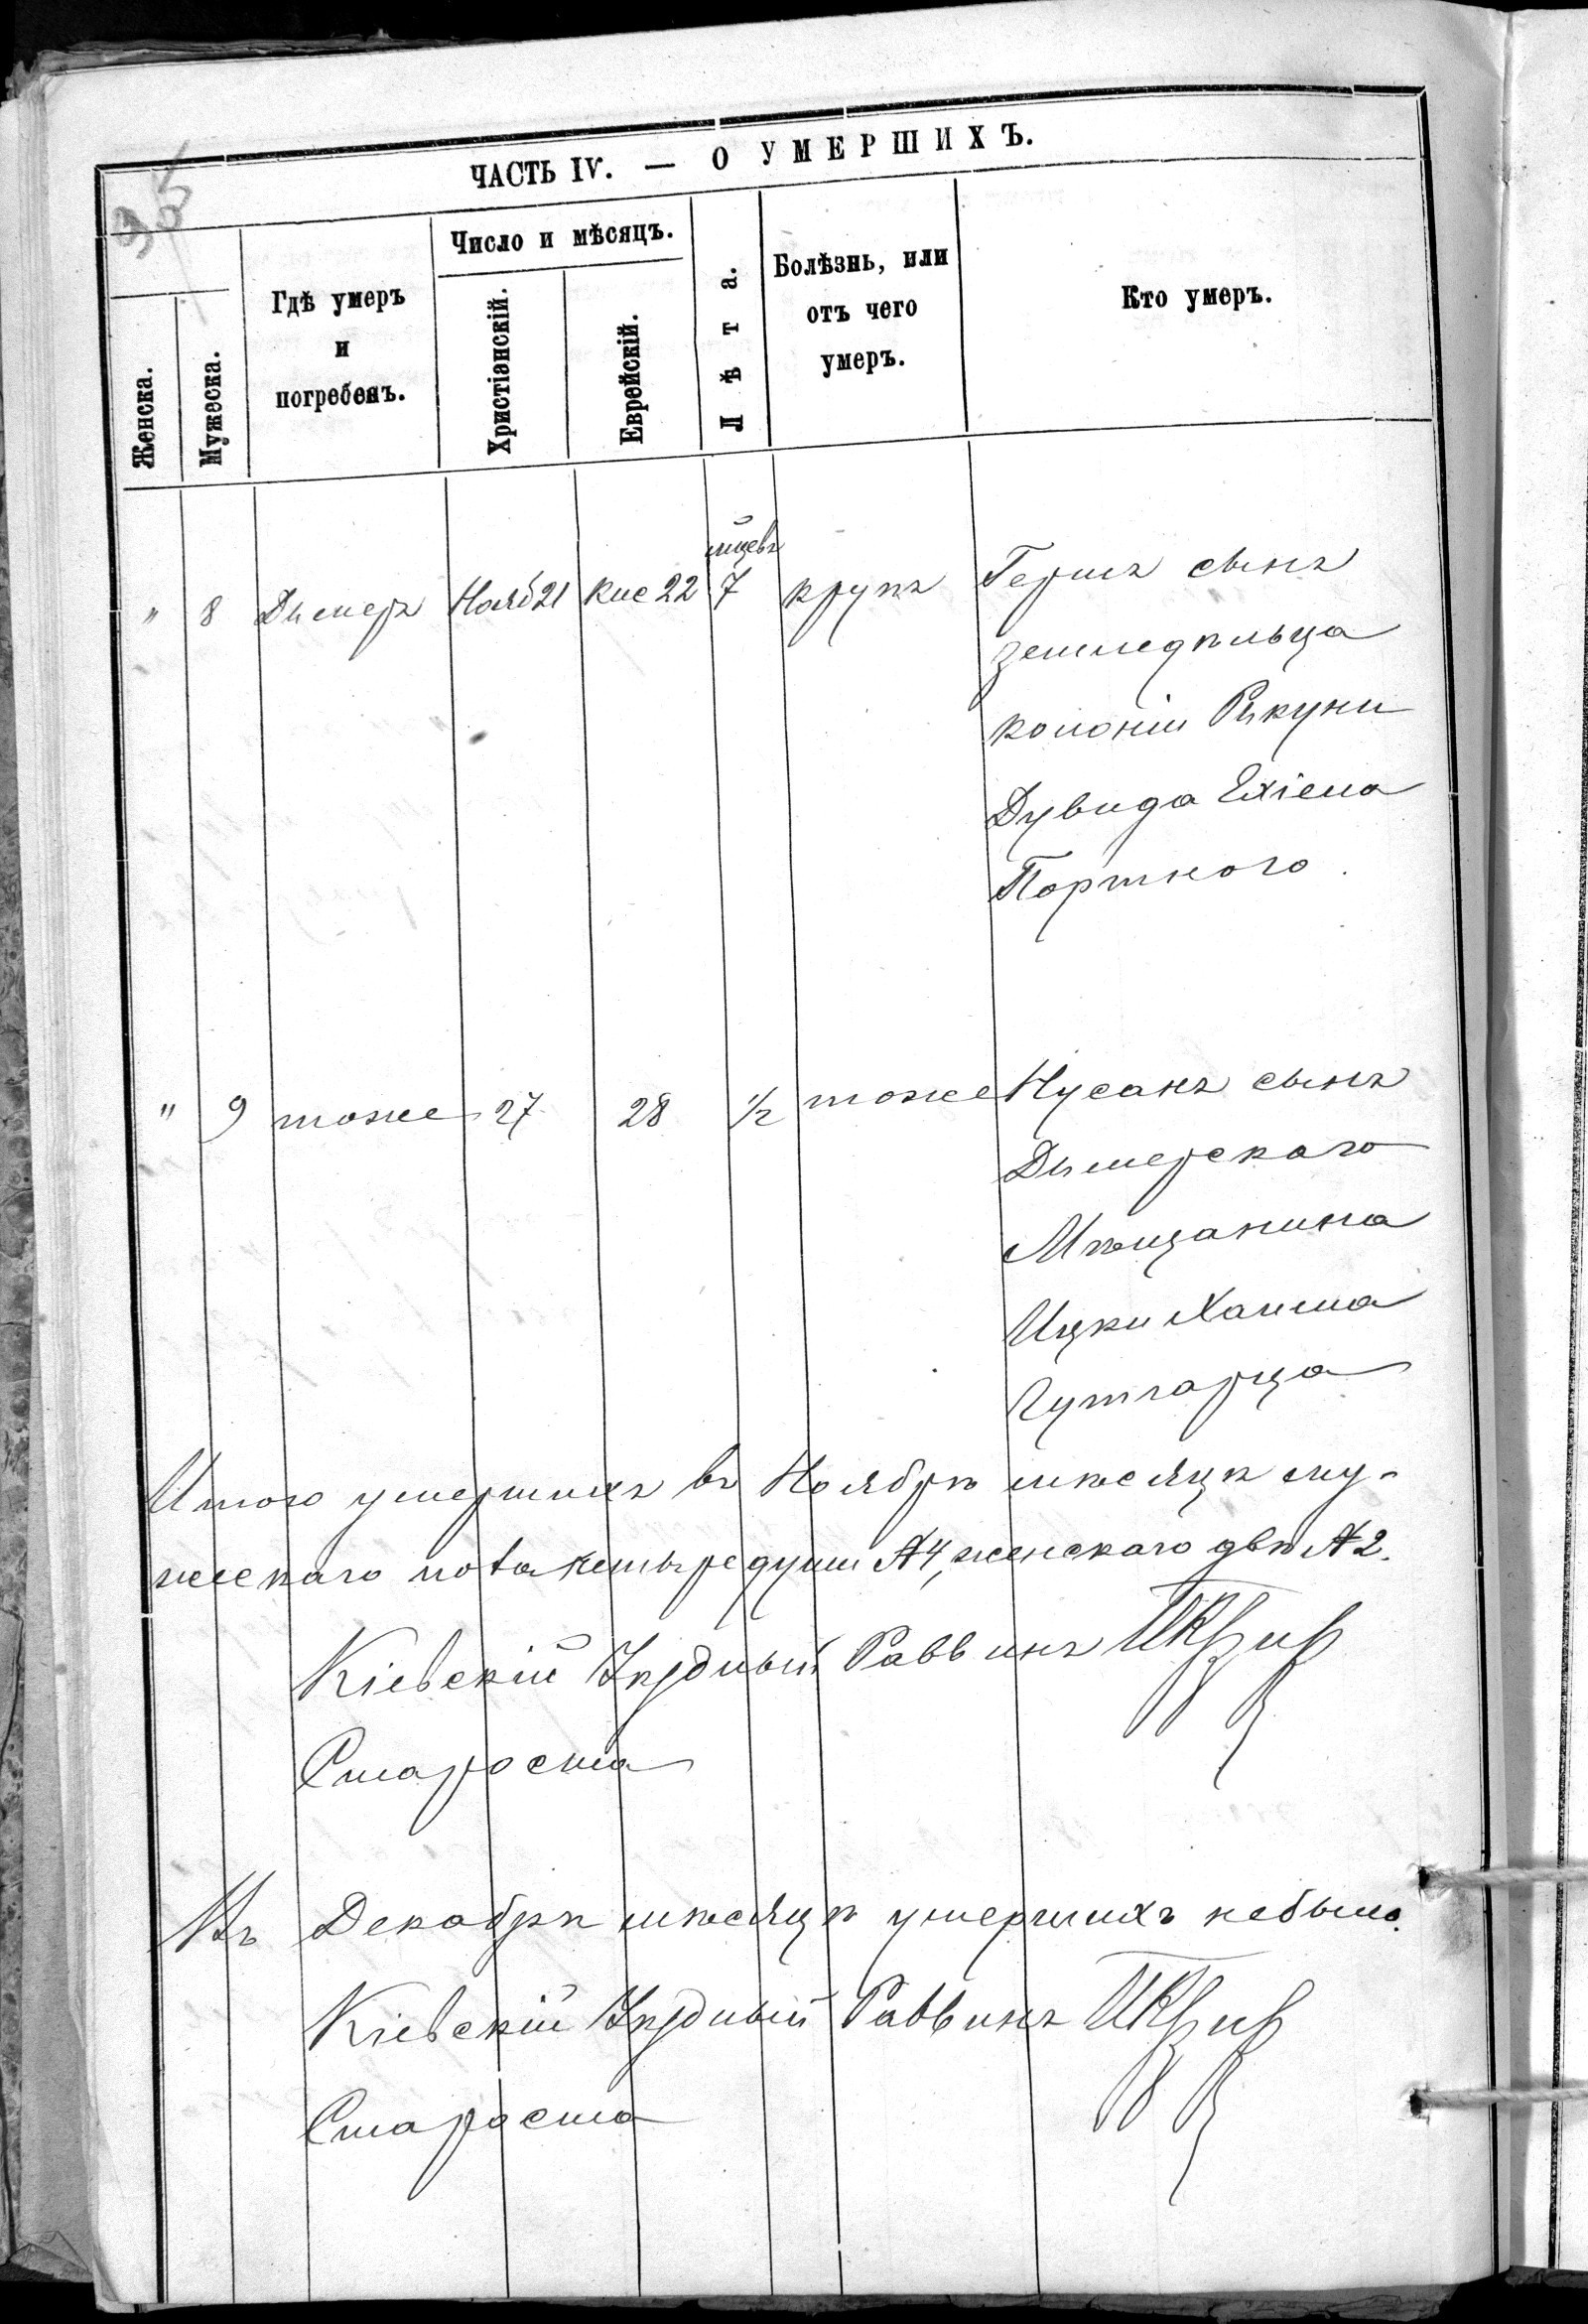 ЧАСТЬ IV. — О УМЕРШИХЪ.
Женска.
Мужеска.
Гдѣ умеръ
и
погребенъ.
Число и мѣсяцъ.
Христіанскій.
Еврейскій.
Лѣта.
Болѣзнь, или
отъ чего
умеръ.
Кто умеръ.
" 8 Дымеръ Нояб 21 Кис 22 мцевъ 7 крупъ Гершъ сынъ
земледѣльца
колоніи Рыкуни
Дувида Ехіела
Портного.
" 9 тоже 27 28 1/2 тоже Нусанъ сынъ
Дымерскаго
Мѣщанина
Ицки Хаима
Гутгарца
Итого умершихъ въ Ноябрѣ мѣсяцѣ му-
жескаго пола четыре души № 4, женскаго двѣ № 2.
Кіевскій Уѣздный Раввинъ
Староста
Въ Декабрѣ мѣсяцѣ умершихъ небыло.
Кіевскій Уѣздный Раввинъ
Староста